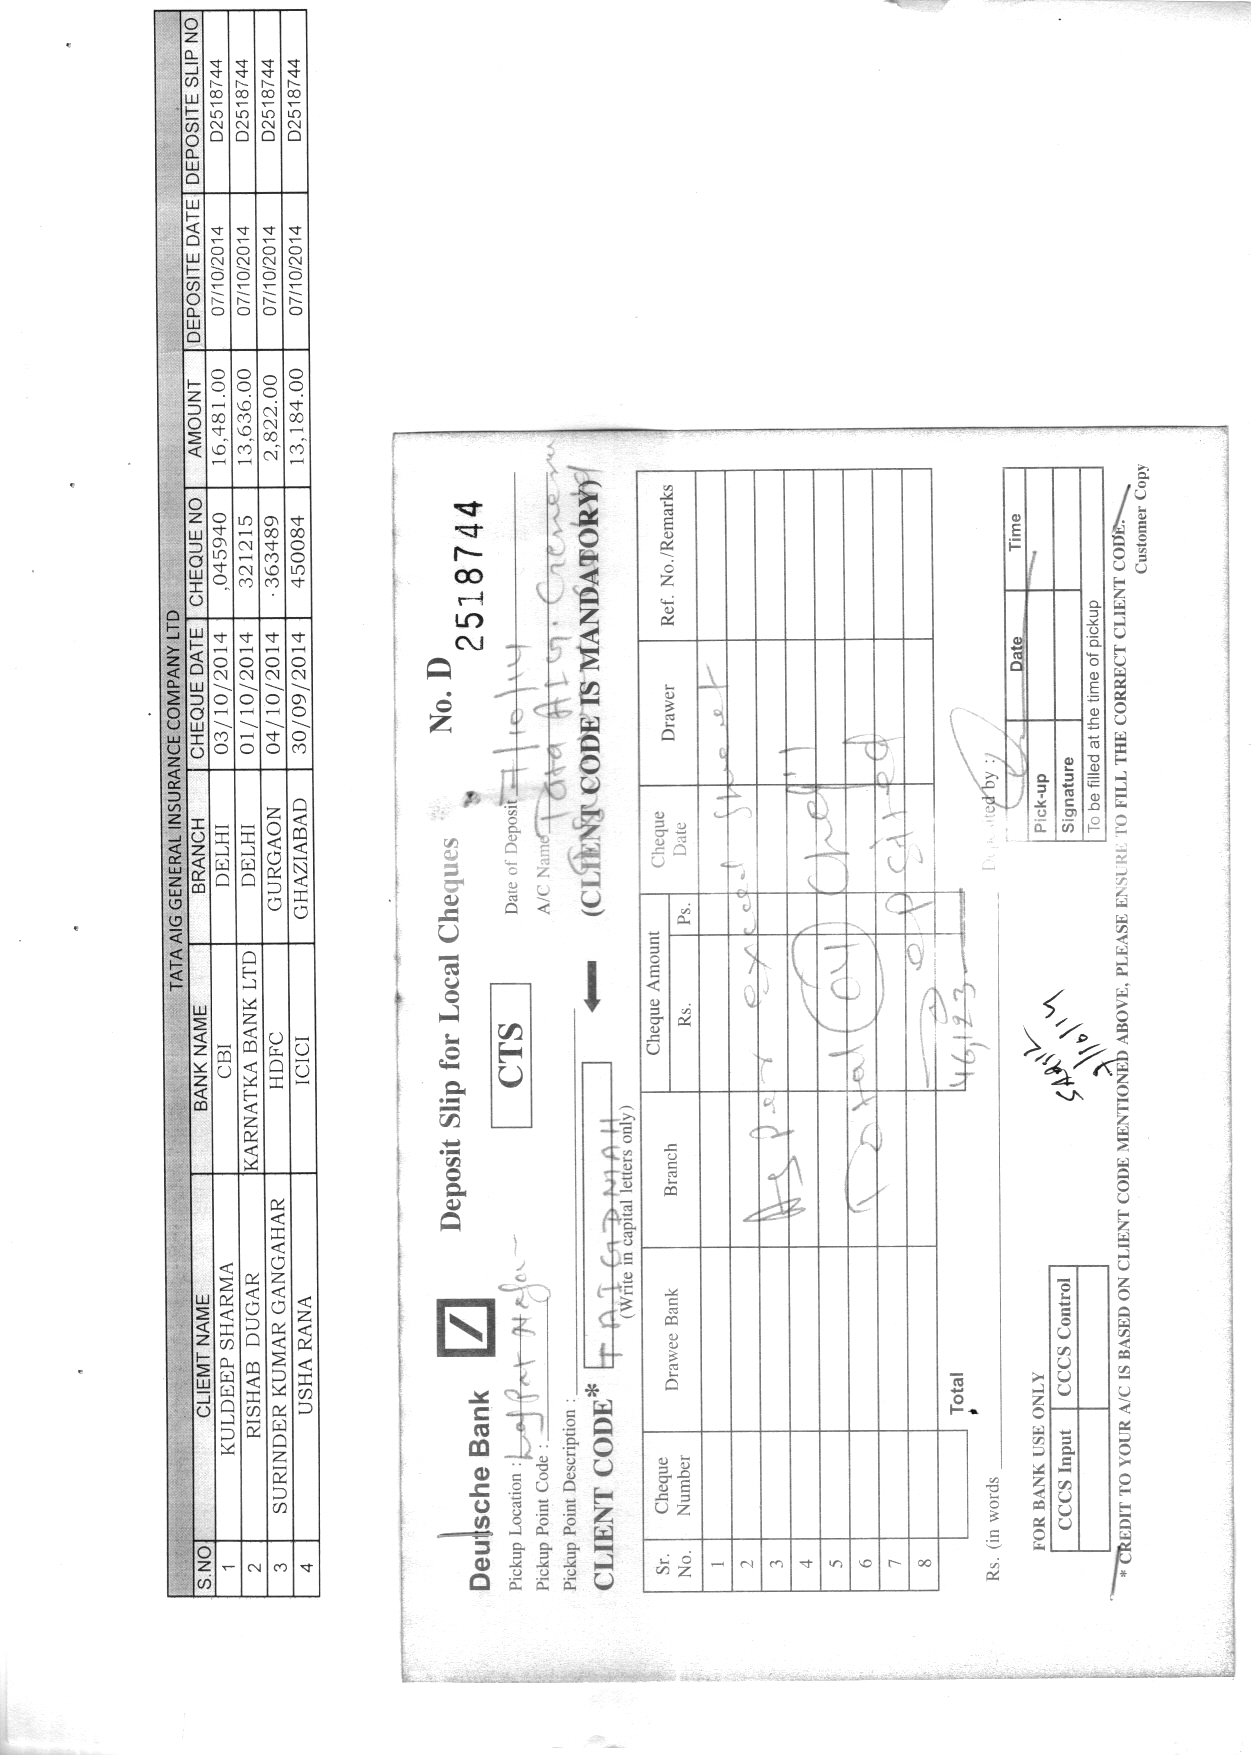 TATA AIG GENERAL INSURANCE COMPANY LTD
S.NO CLIEMT NAME BANK NAME BRANCH CHEQUE DATE CHEQUE NO AMOUNT DEPOSITE DATE DEPOSITE SLIP NO
1 KULDEEP SHARMA CBI DELHI 03/10/2014 ,045940 16,481.00 07/10/2014 D2518744
2 RISHAB DUGAR KARNATKA BANK LTD DELHI 01/10/2014 321215 13,636.00 07/10/2014 D2518744
3 SURINDER KUMAR GANGAHAR HDFC GURGAON 04/10/2014 363489 2,822.00 07/10/2014 D2518744
4 USHA RANA ICICI GHAZIABAD 30/09/2014 450084 13,184.00 07/10/2014 D2518744
Deutsche Bank Deposit Slip for Local Cheques No. D 2518744
Pickup Location : Lajpat Nagar CTS Date of Deposit 7/10/14
Pickup Point Code : A/C Name Tata AIG. General
Pickup Point Description :
CLIENT CODE* TAIGDMAH (CLIENT CODE IS MANDATORY)
(Write in capital letters only)
Sr. No. Cheque Number Drawee Bank Branch Cheque Amount Rs. Ps. Cheque Date Drawer Ref. No./Remarks
1
2 As per excel sheet
3
4
5 Total 04 Chq's
6
7 Deposited
8
Total 46,123
Rs. (in words Deposited by :
FOR BANK USE ONLY
CCCS Input CCCS Control
7/10/14
Pick-up Date Time
Signature
To be filled at the time of pickup
* CREDIT TO YOUR A/C IS BASED ON CLIENT CODE MENTIONED ABOVE, PLEASE ENSURE TO FILL THE CORRECT CLIENT CODE.
Customer Copy